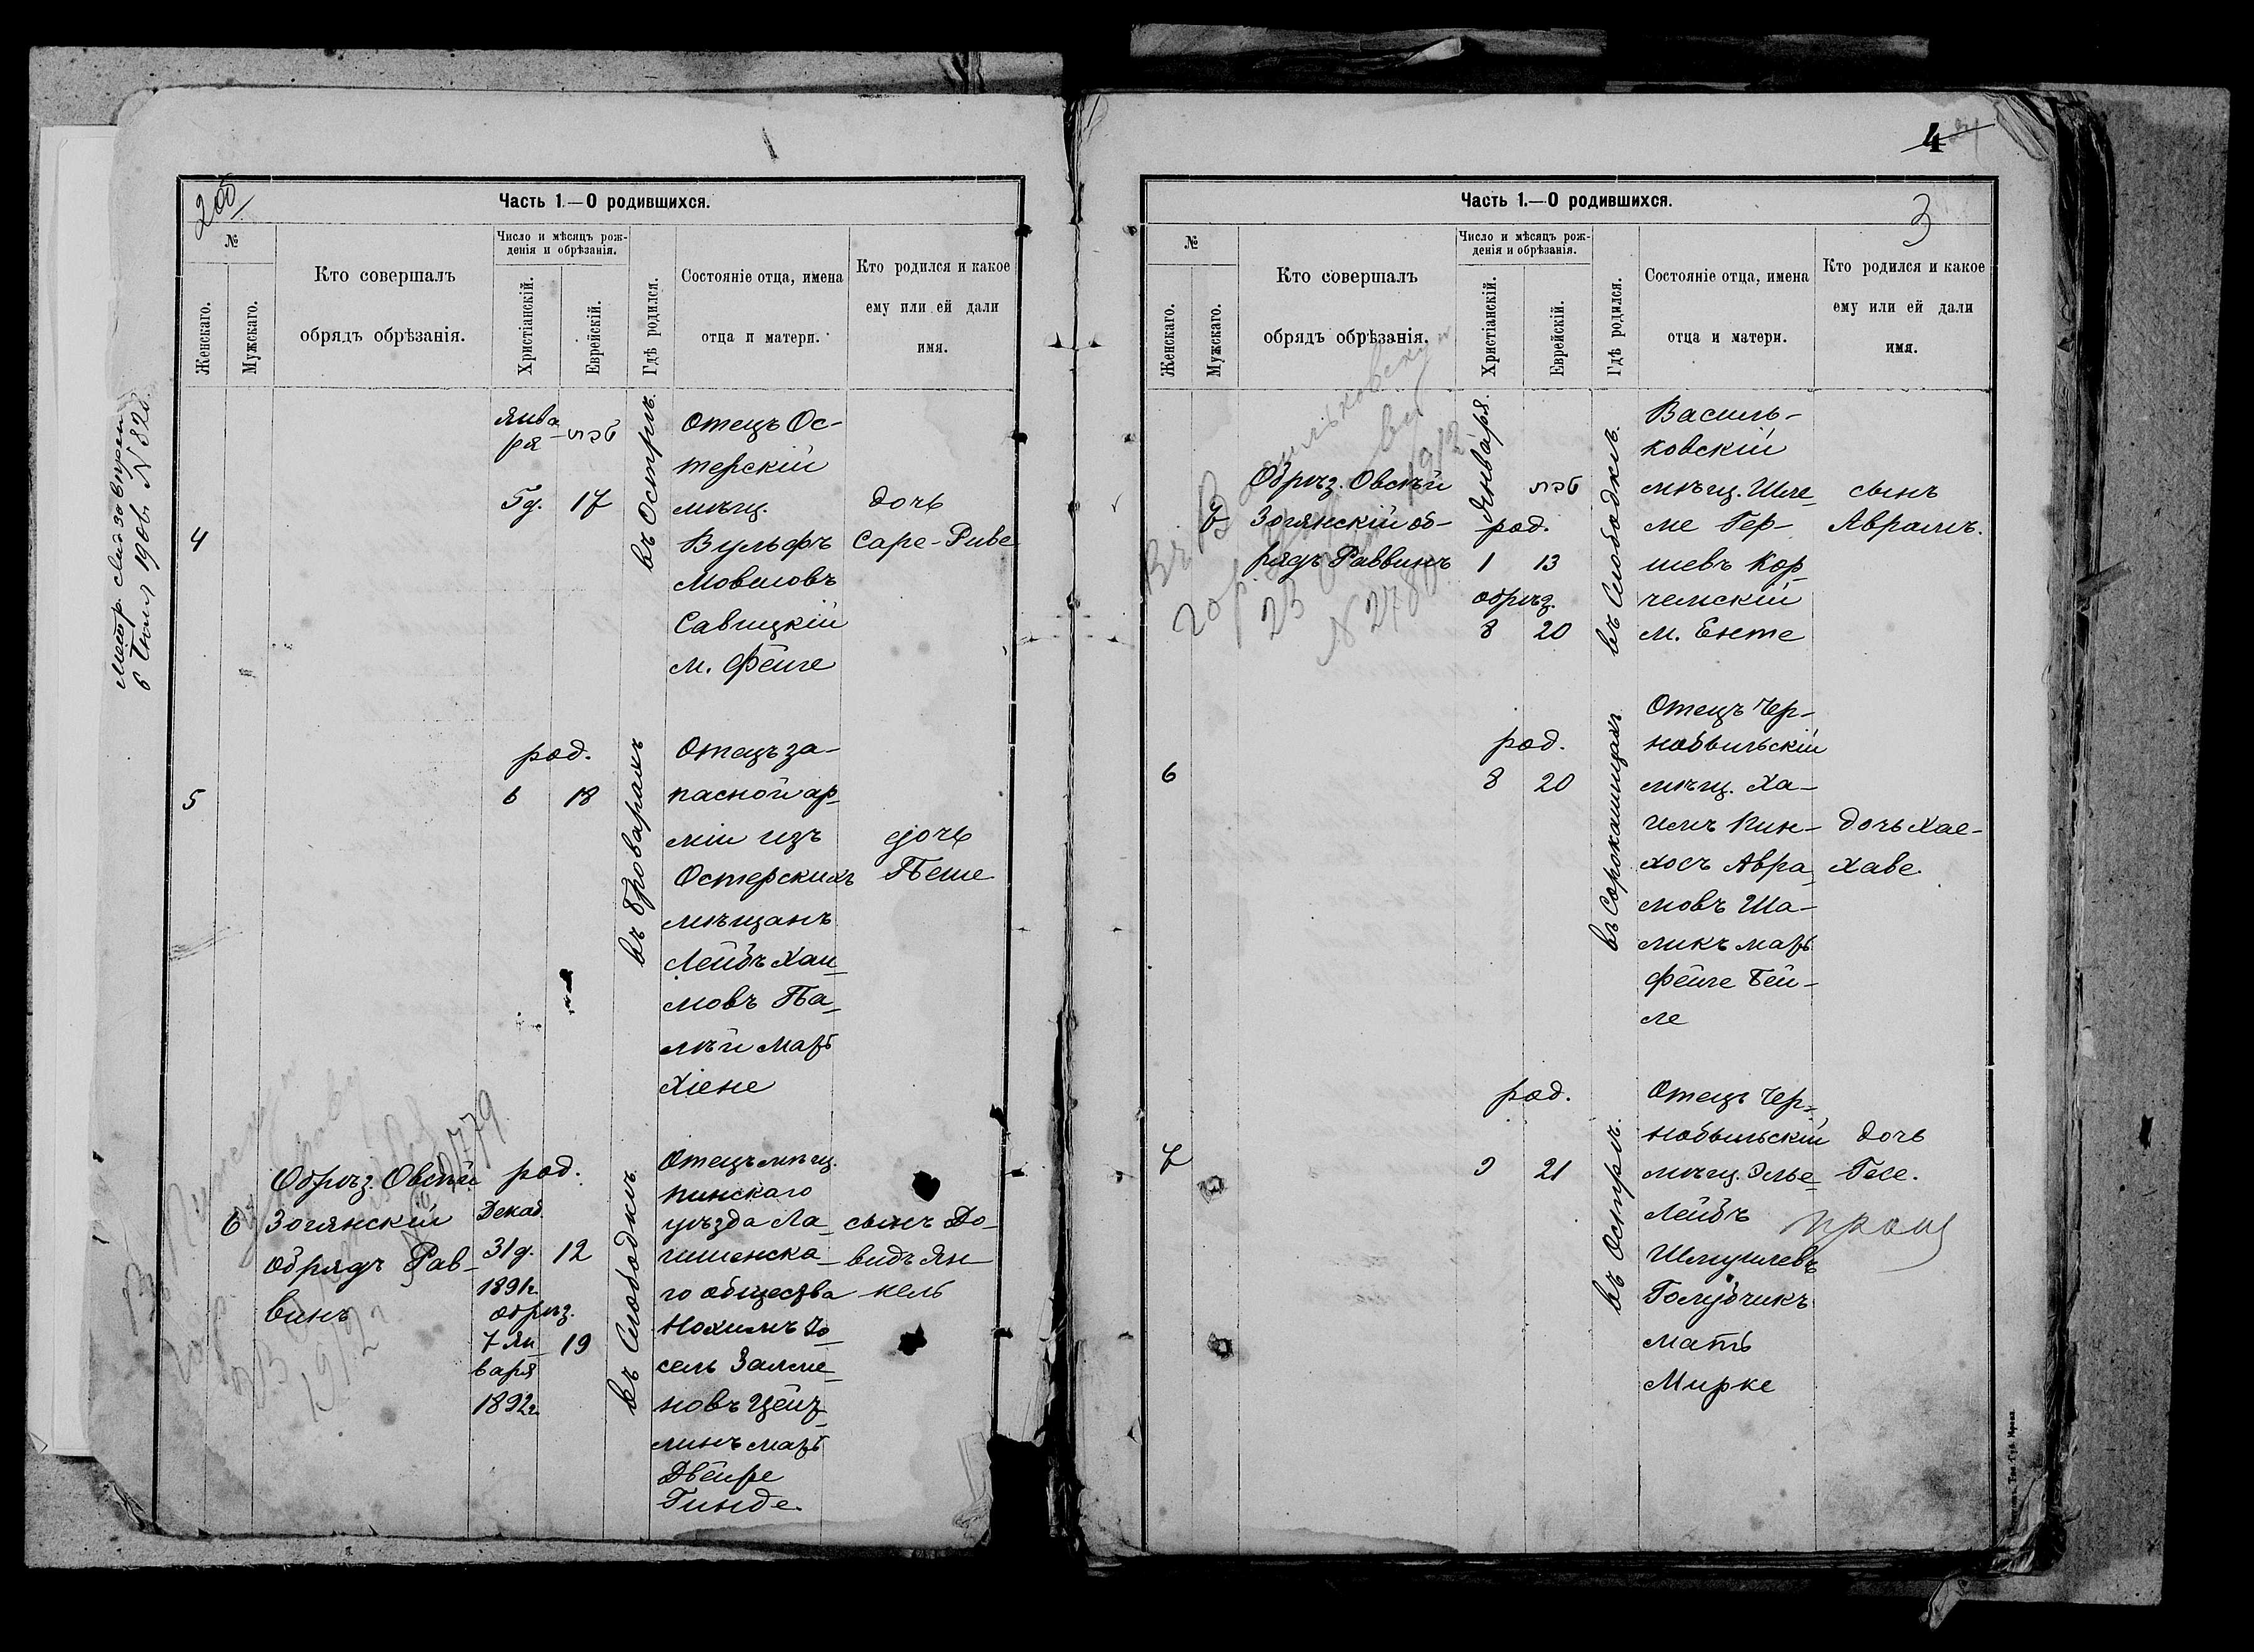 Часть 1.—О родившихся.
№
Женскаго.
Мужскаго.
Кто совершалъ
обрядъ обрѣзанія.
Число и мѣсяцъ рож-
денія и обрѣзанія.
Христіанскій.
Еврейскій.
Гдѣ родился.
Состояніе отца, имена
отца и матери.
Кто родился и какое
ему или ей дали
имя.
4
Янва
ря
5 д.
17
въ Острѣ
Отецъ Ос-
терскій
мѣщ.
Вульфъ
Мовшовъ
Савицкій
м. Фейге
дочь
Саре-Риве
5
род.
6
18
въ Броварахъ
Отецъ за-
пасной ар-
міи изъ
Остерскихъ
мѣщанъ
Лейбъ Хаи-
мовъ Па-
лѣй мать
Хіене
дочь
Пеше
6
Обрѣз. Овсѣй
Зогянскій
обрядъ Рав-
винъ
род.
Декаб.
31 д.
12
1891 г.
обрѣз.
7 Ян-
19
варя
1892 г.
въ Слободкѣ
Отецъ мѣщ.
Пинскаго
уѣзда Ло-
гишенска-
го общества
Нохимъ Іо-
сель Залме-
новъ Цейт-
линъ мать
Двейре
Гинде.
сынъ До-
видъ Ян-
кель
4
3
Часть 1.—О родившихся.
№
Женскаго.
Мужскаго.
Кто совершалъ
обрядъ обрѣзанія.
Число и мѣсяцъ рож-
денія и обрѣзанія.
Христіанскій.
Еврейскій.
Гдѣ родился.
Состояніе отца, имена
отца и матери.
Кто родился и какое
ему или ей дали
имя.
7
Обрѣз. Овсѣй
Зогянскій об-
рядъ Раввинъ
Января.
род.
1
13
обрѣз.
8
20
въ Слободкѣ.
Василь-
ковскій
мѣщ. Шле-
ме Гер-
шевъ Кор-
чемскій
м. Енте
сынъ
Аврамъ.
№ 2780
6
род.
8
20
въ Сорокошицахъ
Отецъ Чер-
нобыльскій
мѣщ. Ха-
имъ Пин-
хосъ Авра-
мовъ Ша-
ликъ мать
Фейге Бей-
ле
дочь Хае-
Хаве.
7
род.
9
21
въ Острѣ.
Отецъ Чер-
нобыльскій
мѣщ. Элье-
Лейбъ
Шмуилевъ
Голубчикъ
мать
Мирке
дочь
Гесе.